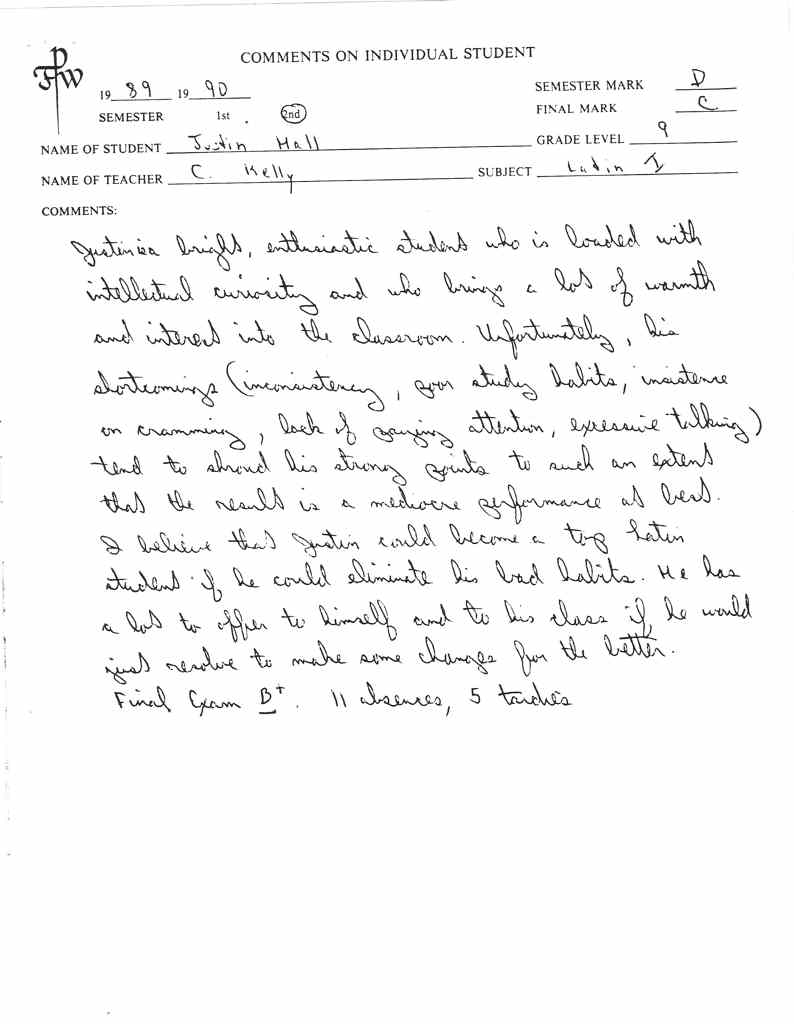 FPW
COMMENTS ON INDIVIDUAL STUDENT
19 89 19 90 SEMESTER MARK D
SEMESTER 1st . 2nd FINAL MARK C
NAME OF STUDENT Justin Hall GRADE LEVEL 9
NAME OF TEACHER C. Kelly SUBJECT Latin I
COMMENTS:
Justin is a bright, enthusiastic student who is loaded with
intellectual curiosity and who brings a lot of warmth
and interest into the classroom. Unfortunately, his
shortcomings (inconsistency, poor study habits, insistence
on cramming, lack of paying attention, excessive talking)
tend to shroud his strong points to such an extent
that the result is a mediocre performance at best.
I believe that Justin could become a top Latin
student if he could eliminate his bad habits. He has
a lot to offer to himself and to his class if he would
just resolve to make some changes for the better.
Final Exam B+. 11 absences, 5 tardies